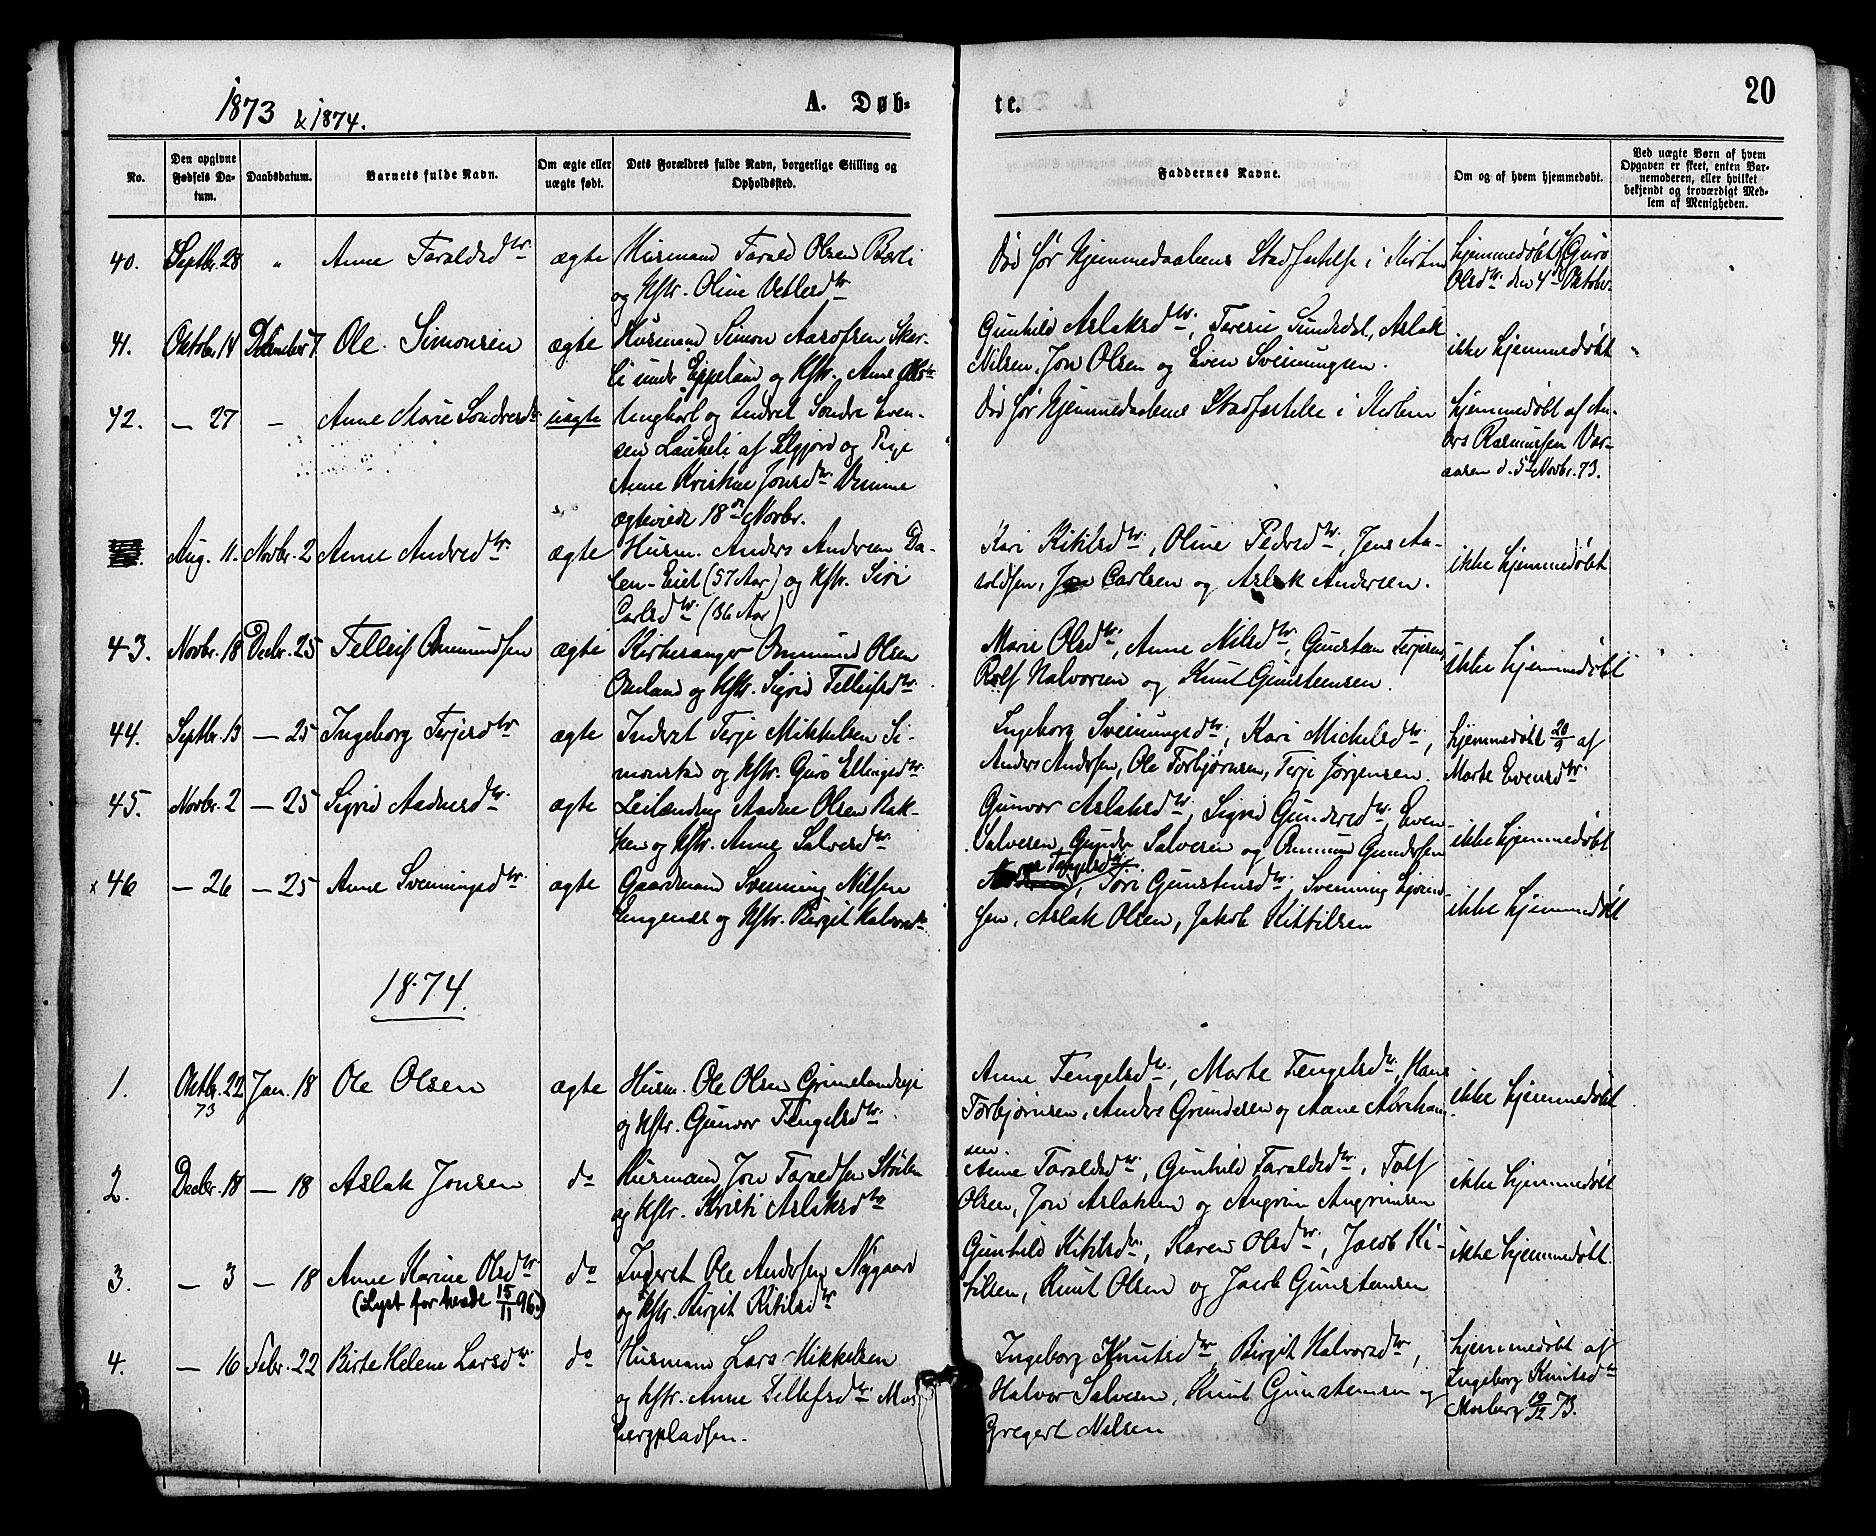 1873 & 1874.
A. Døb-
te.
20
No.
Den opgivne Fødsels Da-tum.
Daabsdatum.
Barnets fulde Navn.
Om ægte eller uægte født.
Dets Forældres fulde Navn, borgerlige Stilling og Opholdssted.
Faddernes Navne.
Om og af hvem hjemmedøbt.
Ved uægte Børn af hvem Opgaven er skeet, enten Bar-nemoderen, eller hvilket bekjendt og troværdigt Med-lem af Menigheden.
40. Septbr. 28 " Anne Taraldsdtr. ægte
Husmand Tarald Olsen
og Kstr. Oline Vetlesdtr
Død før Hjemmedaabens Stadfæstelse i Kirken
hjemmedøbt af Guro
Olsdtr. den 4de Oktober
41. Oktobr. 14 December 7 Ole Simonsen ægte
Husmand Simon
li under Eppeland og Kstr. Anne
Gunhild Aslaksdtr., Aslak
Nilsen, Jon Olsen og Even Sveinungsen.
ikke hjemmedøbt
42. — 27 — Anne Marie Sondresdtr uægte
Ungkarl og Inderst Sondre Even-
sen af og Pige
Anne Kristine Jonsdtr Vimme
ægteviede 18de Novbr.
Død før Hjemmedaabens Stadfæstelse i Kirken
hjemmedøbt af An-
ders Rasmussen Vor-
aasen d. 5te Novbr. 73.
Aug. 11. Novbr. 2 Anne Andresdtr. ægte
Husm. Anders Andersen Da-
len-Eiet (57 Aar) og Kstr. Siri
Carlsdtr. (36 Aar)
Kari Kitilsdtr., Oline Pedersdtr., Jens Aa-
soldsen, Jon Carlsen og Aslak Andersen.
ikke hjemmedøbt
43. Novbr. 18 Decbr. 25 Tellef Ommundsen ægte
Kirkesanger Ommund Olsen
Omland og Kstr. Sigrid Tellefsdtr.
Marie Olsdtr., Anne Nilsdtr., Gunsten Terjesen,
Rolf Halvorsen og Knut Gunstensen.
ikke hjemmedøbt
44. Septbr. 13 — 25 Ingeborg Terjesdtr ægte
Inderst Terje Mikkelsen Si-
monstad og Kstr. Guro Ellingsdtr.
Ingeborg Sveinungsdtr., Kari Michelsdtr.,
Anders Andersen, Ole Torbjørnsen, Terje Jørgensen.
hjemmedøbt 20/9 af
Marte Evensdtr.
45. Novbr. 2 — 25 Sigrid Aadnesdtr. ægte
Leilænding Aadne Olsen Bak-
ken og Kstr. Anne Salvesdtr.
Gunvor Aslaksdtr., Sigrid Gundersdtr., Even
Salvesen, Gunder Salvesen og Ommund Gundersen
ikke hjemmedøbt
x 46 — 26 — 25 Anne Svenningsdtr. ægte
Gaardmand Svenning Nilsen
Engenes og Kstr. Birgit Halvorsdtr
Tengelsdtr., Tori Gunstensdtr., Svenning
sen, Aslak Olsen, Jakob Kittilsen
ikke hjemmedøbt
1874.
1. Oktbr. 22 Jan. 18 Ole Olsen ægte
73
Husm. Ole Olsen Grimelandseje
og Kstr. Gunvor Tengelsdtr.
Anne Tengelsdtr., Marte Tengelsdtr., Hans
Torbjørnsen, Anders Gundersen og Aane Abraham-
sen.
ikke hjemmedøbt
2. Decbr. 18 — 18 Aslak Jonsen do
Husmand Jon Taraldsen
og Kstr. Kristi Aslaksdtr
Anne Taraldsdtr., Gunhild Taraldsdtr.,
Olsen, Jon Aslaksen og Angrim Angrimsen
ikke hjemmedøbt
3. — 3 — 18 Anne Karine Olsdtr do
(Lyst for hende 15/11 96.)
Inderst Ole Andersen Nygaard
og Kstr. Birgit Kitilsdtr
Gunhild Kitilsdtr., Karen Olsdtr., Jacob Ki-
tilsen, Knut Olsen og Jacob Gunstensen
ikke hjemmedøbt
4. — 16 Febr. 22 Birte Helene Larsdtr. do
Husmand Lars Mikkelsen
og Kstr. Anne Tellefsdtr. Mos-
bergpladsen.
Ingeborg Knutsdtr. Birgit Halvorsdtr.,
Halvor Salvesen, Knut Gunstensen og
Gregert Nilsen
hjemmedøbt af
Ingeborg Knutsdtr
Mosberg 19/12 73.